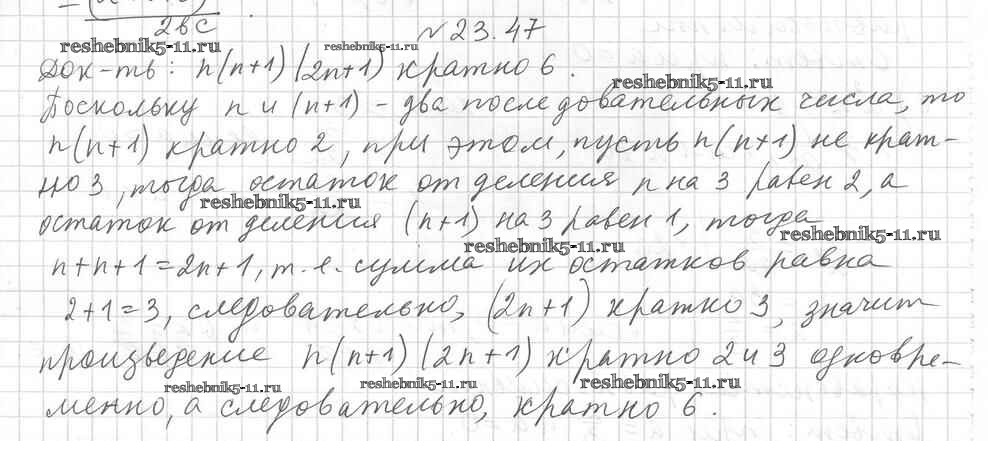 2bc
№23.47
reshebnik5-11.ru
reshebnik5-11.ru
Док-ть: n(n+1)(2n+1) кратно 6.
reshebnik5-11.ru
Поскольку n и (n+1) - два последовательных числа, то
n(n+1) кратно 2, при этом, пусть n(n+1) не крат-
но 3, тогда остаток от деления n на 3 равен 2, а
reshebnik5-11.ru
остаток от деления (n+1) на 3 равен 1, тогда
reshebnik5-11.ru
reshebnik5-11.ru
n+n+1=2n+1, т.е. сумма их остатков равна
2+1=3, следовательно, (2n+1) кратно 3, значит
произведение n(n+1)(2n+1) кратно 2 и 3 одновре-
reshebnik5-11.ru
reshebnik5-11.ru
reshebnik5-11.ru
менно, а следовательно, кратно 6.